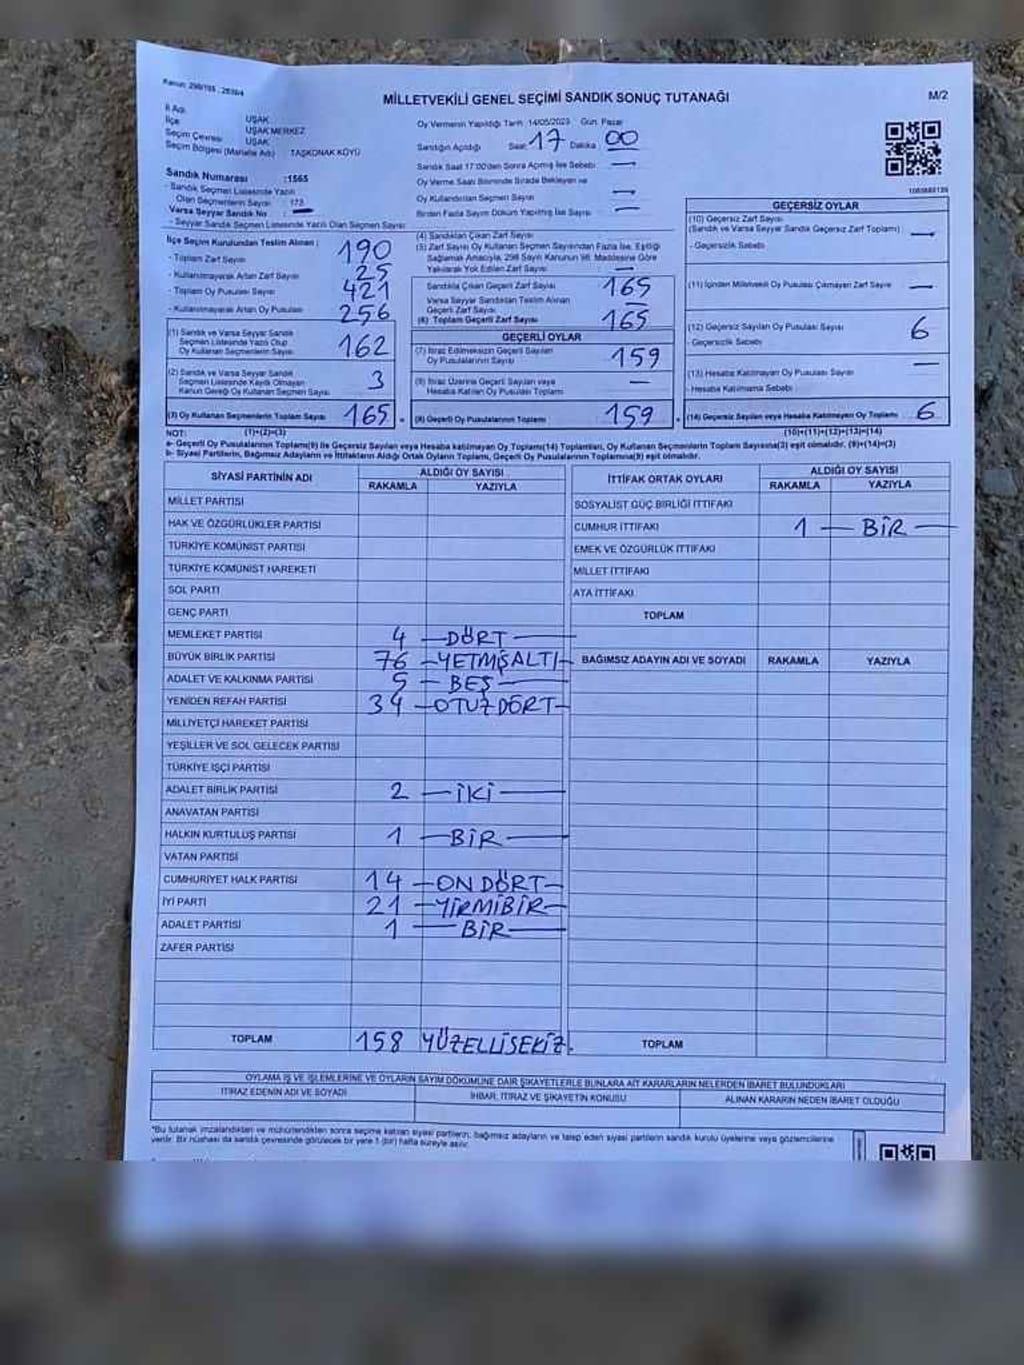 MİLLETVEKİLİ GENEL SEÇİMİ SANDIK SONUÇ TUTANAĞI
M/2
İl Adı UŞAK
İlçe UŞAK MERKEZ
Seçim Çevresi UŞAK
Seçim Bölgesi (Mahalle Adı) TAŞKONAK KÖYÜ
Oy Vermenin Yapıldığı Tarih 14/05/2023 Gün: Pazar
Sandığın Açıldığı Saat 17 Dakika 00
Sandık Saat 17:00'den Sonra Açılmış İse Sebebi —
Oy Verme Saati Bitiminde Sırada Bekleyen ve
Oy Kullandırılan Seçmen Sayısı —
Birden Fazla Sayım Döküm Yapılmış İse Sayısı —
Sandık Numarası :1565
- Sandık Seçmen Listesinde Yazılı
Olan Seçmen Sayısı : 173
Varsa Seyyar Sandık No : —
- Seyyar Sandık Seçmen Listesinde Yazılı Olan Seçmen Sayısı
İlçe Seçim Kurulundan Teslim Alınan :
- Toplam Zarf Sayısı 190
- Kullanılmayarak Artan Zarf Sayısı 25
- Toplam Oy Pusulası Sayısı 421
- Kullanılmayarak Artan Oy Pusulası 256
(1) Sandık ve Varsa Seyyar Sandık
Seçmen Listesinde Yazılı Olup
Oy Kullanan Seçmenlerin Sayısı 162
(2) Sandık ve Varsa Seyyar Sandık
Seçmen Listesinde Kaydı Olmayan
Kanun Gereği Oy Kullanan Seçmen Sayısı 3
(3) Oy Kullanan Seçmenlerin Toplam Sayısı 165
(1)+(2)=(3)
(4) Sandıktan Çıkan Zarf Sayısı
(5) Zarf Sayısı Oy Kullanan Seçmen Sayısından Fazla İse, Eşitliği
Sağlamak Amacıyla, 298 Sayılı Kanunun 98. Maddesine Göre
Yakılarak Yok Edilen Zarf Sayısı —
Sandıkta Çıkan Geçerli Zarf Sayısı 165
Varsa Seyyar Sandıktan Teslim Alınan
Geçerli Zarf Sayısı —
(6) Toplam Geçerli Zarf Sayısı 165
GEÇERLİ OYLAR
(7) İtiraz Edilmeksizin Geçerli Sayılan
Oy Pusulalarının Sayısı 159
(8) İtiraz Üzerine Geçerli Sayılan veya
Hesaba Katılan Oy Pusulası Toplamı —
(9) Geçerli Oy Pusulalarının Toplamı 159
GEÇERSİZ OYLAR
(10) Geçersiz Zarf Sayısı
(Sandık ve Varsa Seyyar Sandık Geçersiz Zarf Toplamı) —
- Geçersizlik Sebebi
(11) İçinden Milletvekili Oy Pusulası Çıkmayan Zarf Sayısı —
(12) Geçersiz Sayılan Oy Pusulası Sayısı 6
- Geçersizlik Sebebi
(13) Hesaba Katılmayan Oy Pusulası Sayısı —
- Hesaba Katılmama Sebebi
(14) Geçersiz Sayılan veya Hesaba Katılmayan Oy Toplamı 6
(10)+(11)+(12)+(13)=(14)
NOT:
a- Geçerli Oy Pusulalarının Toplamı(9) ile Geçersiz Sayılan veya Hesaba katılmayan Oy Toplamı(14) Toplamları, Oy Kullanan Seçmenlerin Toplam Sayısına(3) eşit olmalıdır. (9)+(14)=(3)
b- Siyasi Partilerin, Bağımsız Adayların ve İttifakların Aldığı Ortak Oyların Toplamı, Geçerli Oy Pusulalarının Toplamına(9) eşit olmalıdır.
SİYASİ PARTİNİN ADI ALDIĞI OY SAYISI
RAKAMLA YAZIYLA
MİLLET PARTİSİ
HAK VE ÖZGÜRLÜKLER PARTİSİ
TÜRKİYE KOMÜNİST PARTİSİ
TÜRKİYE KOMÜNİST HAREKETİ
SOL PARTİ
GENÇ PARTİ
MEMLEKET PARTİSİ 4 — DÖRT —
BÜYÜK BİRLİK PARTİSİ 76 — YETMİŞALTI —
ADALET VE KALKINMA PARTİSİ 5 — BEŞ —
YENİDEN REFAH PARTİSİ 34 — OTUZDÖRT —
MİLLİYETÇİ HAREKET PARTİSİ
YEŞİLLER VE SOL GELECEK PARTİSİ
TÜRKİYE İŞÇİ PARTİSİ
ADALET BİRLİK PARTİSİ 2 — İKİ —
ANAVATAN PARTİSİ
HALKIN KURTULUŞ PARTİSİ 1 — BİR —
VATAN PARTİSİ
CUMHURİYET HALK PARTİSİ 14 — ON DÖRT —
İYİ PARTİ 21 — YİRMİBİR —
ADALET PARTİSİ 1 — BİR —
ZAFER PARTİSİ
TOPLAM 158 YÜZELLİSEKİZ.
İTTİFAK ORTAK OYLARI ALDIĞI OY SAYISI
RAKAMLA YAZIYLA
SOSYALİST GÜÇ BİRLİĞİ İTTİFAKI
CUMHUR İTTİFAKI 1 — BİR —
EMEK VE ÖZGÜRLÜK İTTİFAKI
MİLLET İTTİFAKI
ATA İTTİFAKI
TOPLAM
BAĞIMSIZ ADAYIN ADI VE SOYADI RAKAMLA YAZIYLA
TOPLAM
OYLAMA İŞ VE İŞLEMLERİNE VE OYLARIN SAYIM DÖKÜMÜNE DAİR ŞİKAYETLERLE BUNLARA AİT KARARLARIN NELERDEN İBARET BULUNDUKLARI
İTİRAZ EDENİN ADI VE SOYADI İHBAR, İTİRAZ VE ŞİKAYETİN KONUSU ALINAN KARARIN NEDEN İBARET OLDUĞU
*Bu tutanak imzalandıktan ve mühürlendikten sonra seçime katılan siyasi partilerin, bağımsız adayların ve talep eden siyasi partilerin sandık kurulu üyelerine veya gözlemcilerine
verilir. Bir nüshası da sandık çevresinde görülecek bir yere 1 (bir) hafta süreyle asılır.